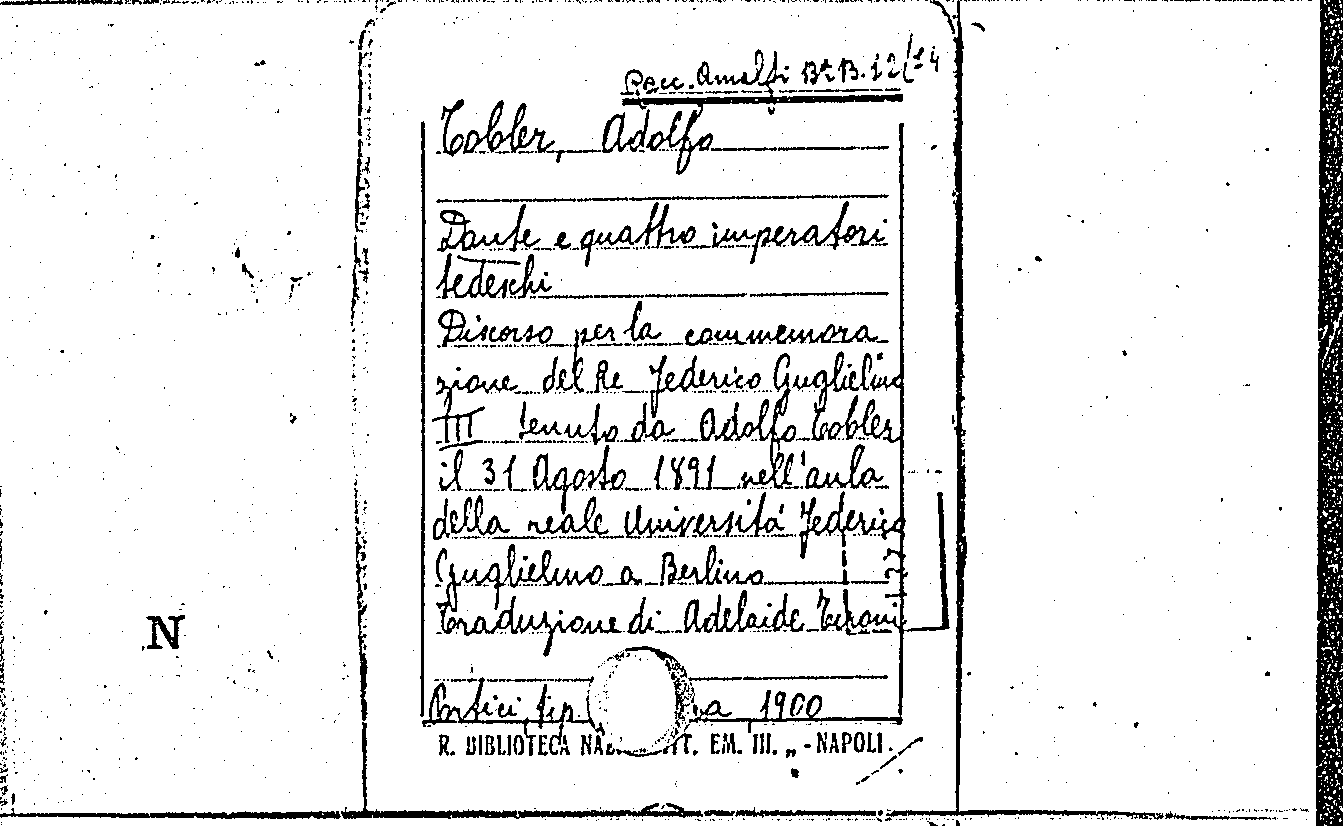 Racc. Amalfi Bª B. 12/14
Tobler, Adolfo
Dante e quattro imperatori
tedeschi
Discorso per la commemora
zione del Re Federico Guglielmo
III tenuto da Adolfo Tobler
il 31 Agosto 1891 nell'aula
della reale Università Federico
Guglielmo a Berlino
Traduzione di Adelaide
N
Portici, tip 1900
R. BIBLIOTECA NAZ. EM. III. „ - NAPOLI.